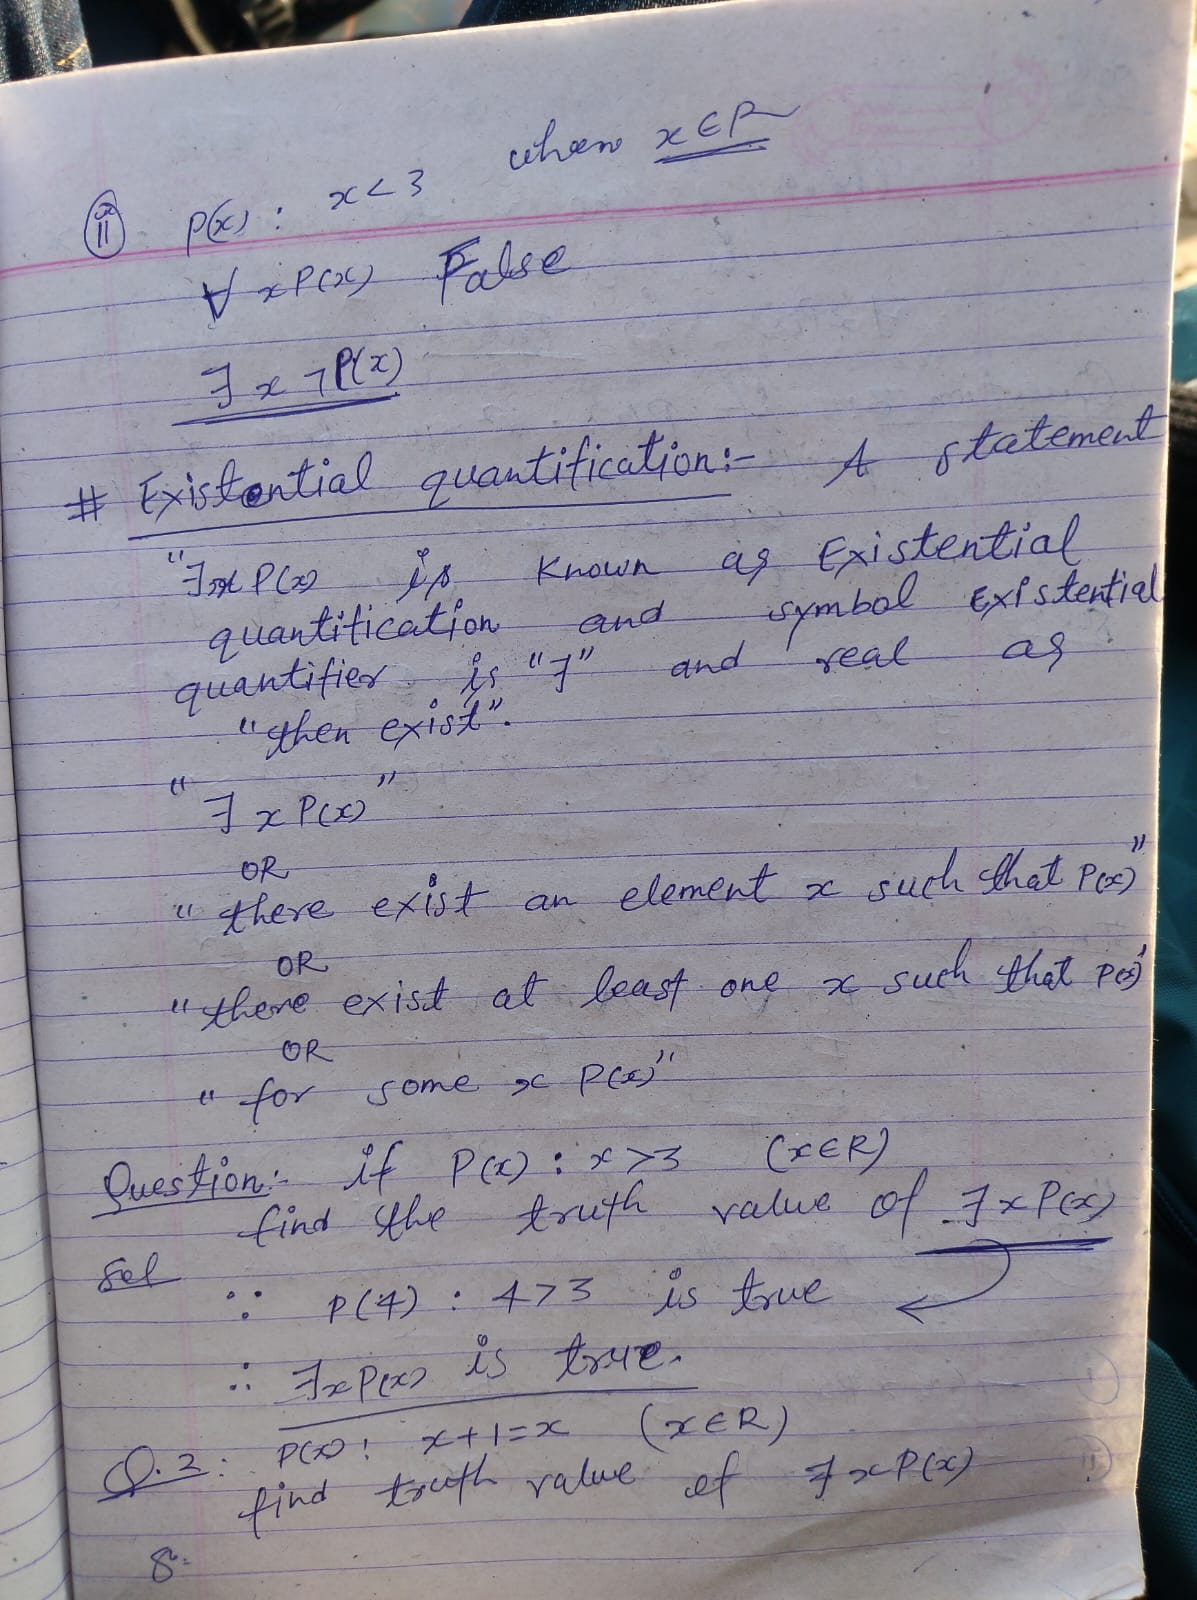 (ii) P(x) : x < 3 where x ∈ R
∀ x P(x) False
∃ x ¬P(x)
# Existential quantification:- A statement
"∃x P(x) is known as Existential
quantification and symbol Existential
quantifier is "∃" and real as
"then exist".
"∃ x P(x)"
OR
"there exist an element x such that P(x)"
OR
"there exist at least one x such that P(x)"
OR
"for some x P(x)"
Question:- if P(x) : x > 3 (x ∈ R)
find the truth value of ∃ x P(x)
Sol
∵ P(4) : 4 > 3 is true
∴ ∃x P(x) is true.
Q.2: P(x) : x + 1 = x (x ∈ R)
find truth value of ∃ x P(x)